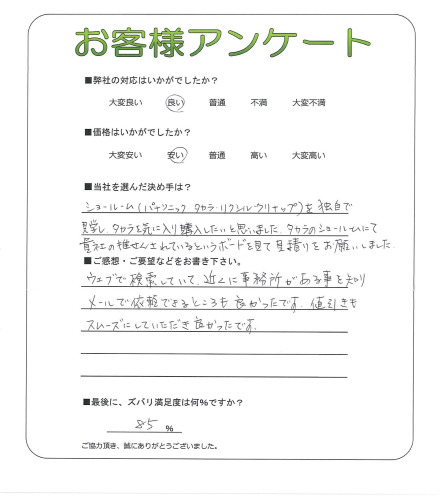 お客様アンケート
■弊社の対応はいかがでしたか？
大変良い 良い 普通 不満 大変不満
■価格はいかがでしたか？
大変安い 安い 普通 高い 大変高い
■当社を選んだ決め手は？
ショールーム（パナソニック タカラ・リクシル・クリナップ）を独自で
見学し、タカラを気に入り購入したいと思いました。タカラのショールームにて
貴社の推せんされているというボードを見て見積りをお願いしました。
■ご感想・ご要望などをお書き下さい。
ウェブで検索していて、近くに事務所がある事を知り
メールで依頼できるところも良かったです。値引きも
スムーズにしていただき良かったです。
■最後に、ズバリ満足度は何％ですか？
85 ％
ご協力頂き、誠にありがとうございました。